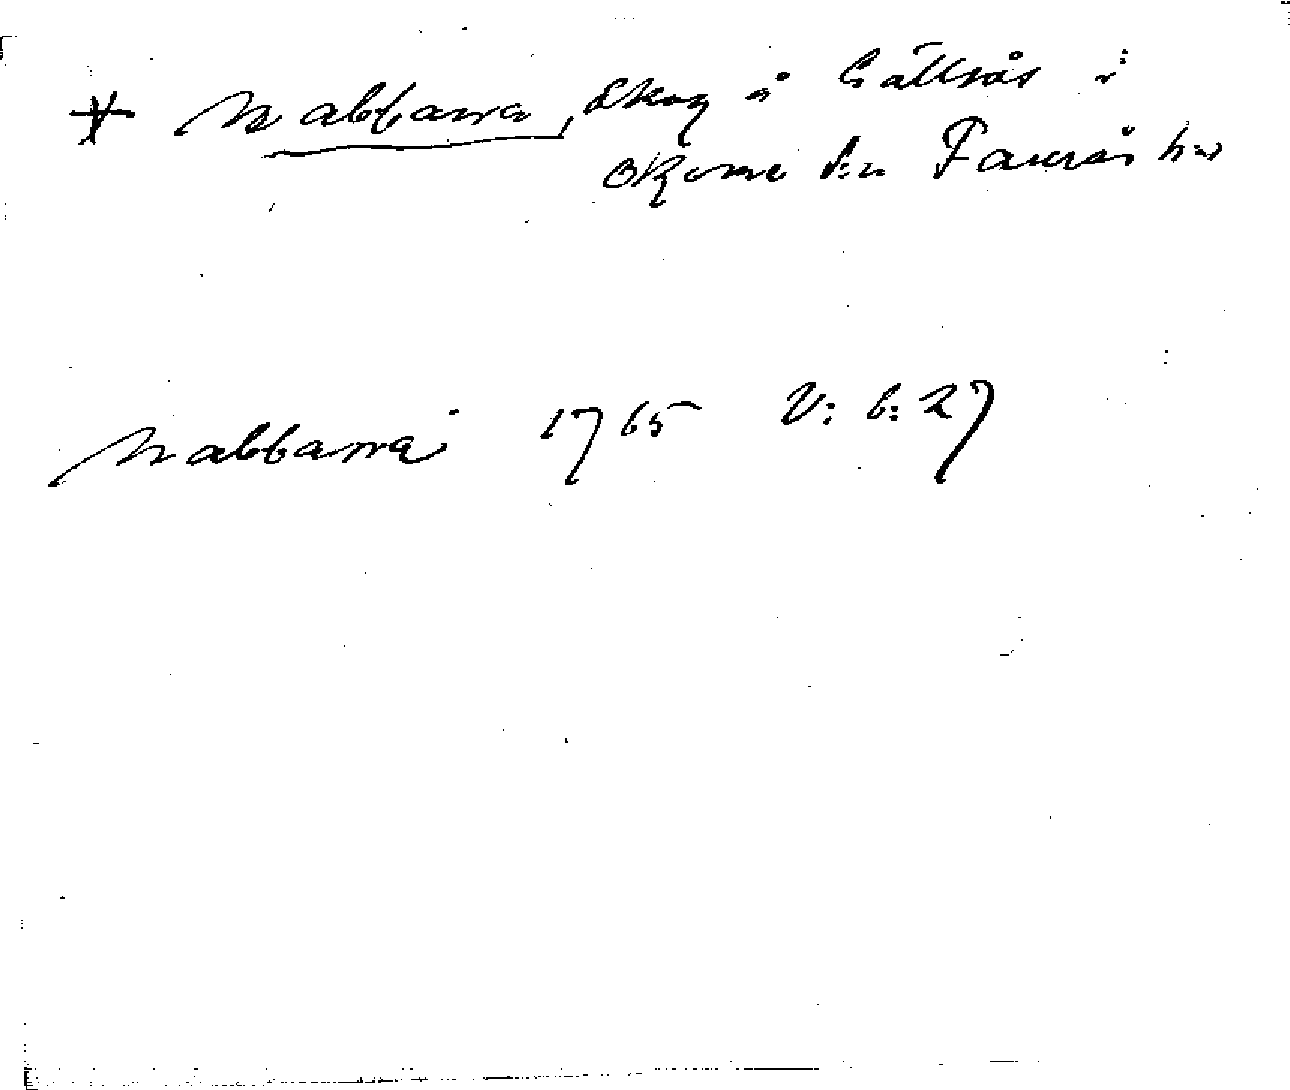 * Nabbarra, skog å Gällsås i
Okome s:n Faurås h:d
Nabbarra 1765 V: 6: 27